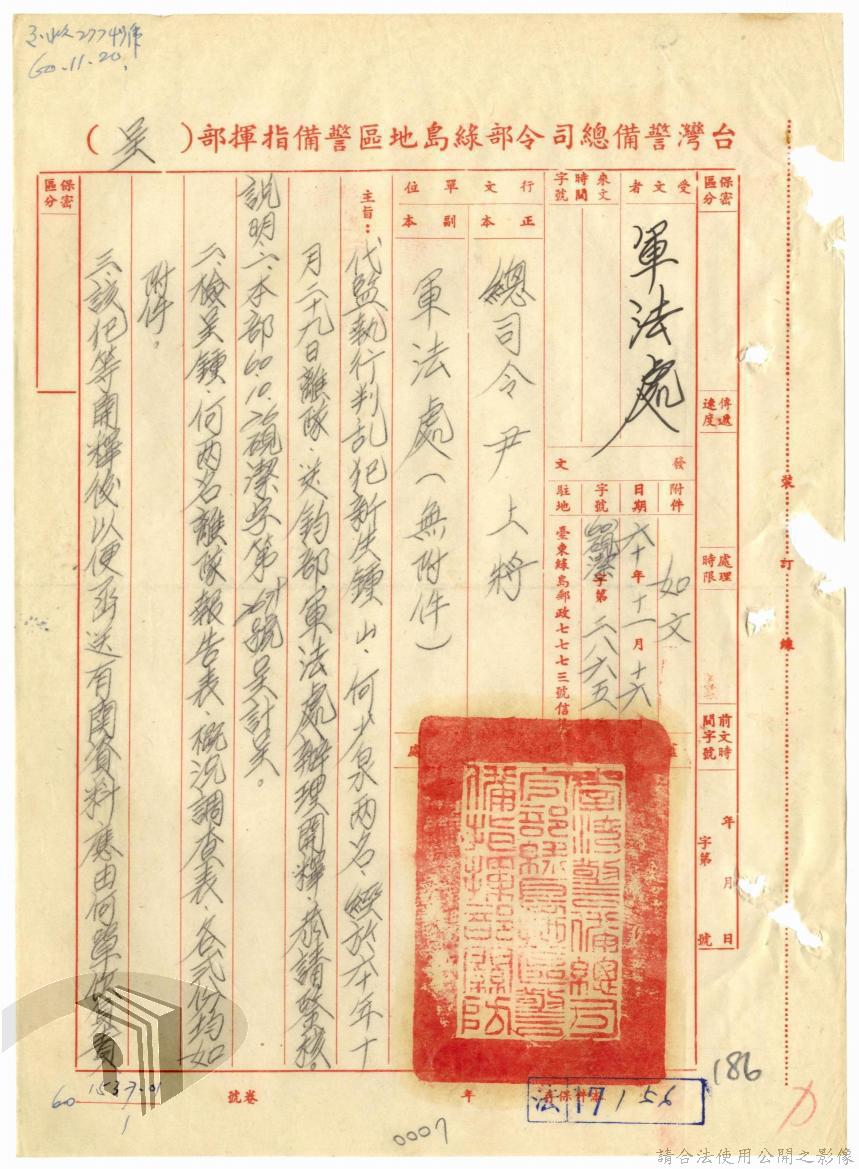 60.11.20.
台灣警備總司令部綠島地區警備指揮部(呈)
保密區分
傳遞速度
處理時限
前文時間字號
年 月 日
字第 號
受文者
軍法處
來文時間字號
發文
附件
如文
日期
六十年十一月十六
字號
字第二八六五
駐地
臺東綠島郵政七七七三號信
行文單位
正本
總司令尹上將
副本
軍法處(無附件)
主旨:
代監執行判乱犯新生鍾山、何少泉两名,經於六十年十
月二十九日離隊,送鈞部軍法處辦理開釋,恭請鑒核。
說明:一、本部60.10.26硯潔字第 號呈計呈。
二、檢呈鍾、何两名離隊報告表、概況調查表、各弍份均如
附件。
三、該犯等開釋後以便函送有關資料應由何單位負責
保密區分
裝訂線
臺灣警備總司
令部綠島地區警
備指揮部關防
186
法 17156
年
卷號
60
1537.01
1
0007
請合法使用公開之影像